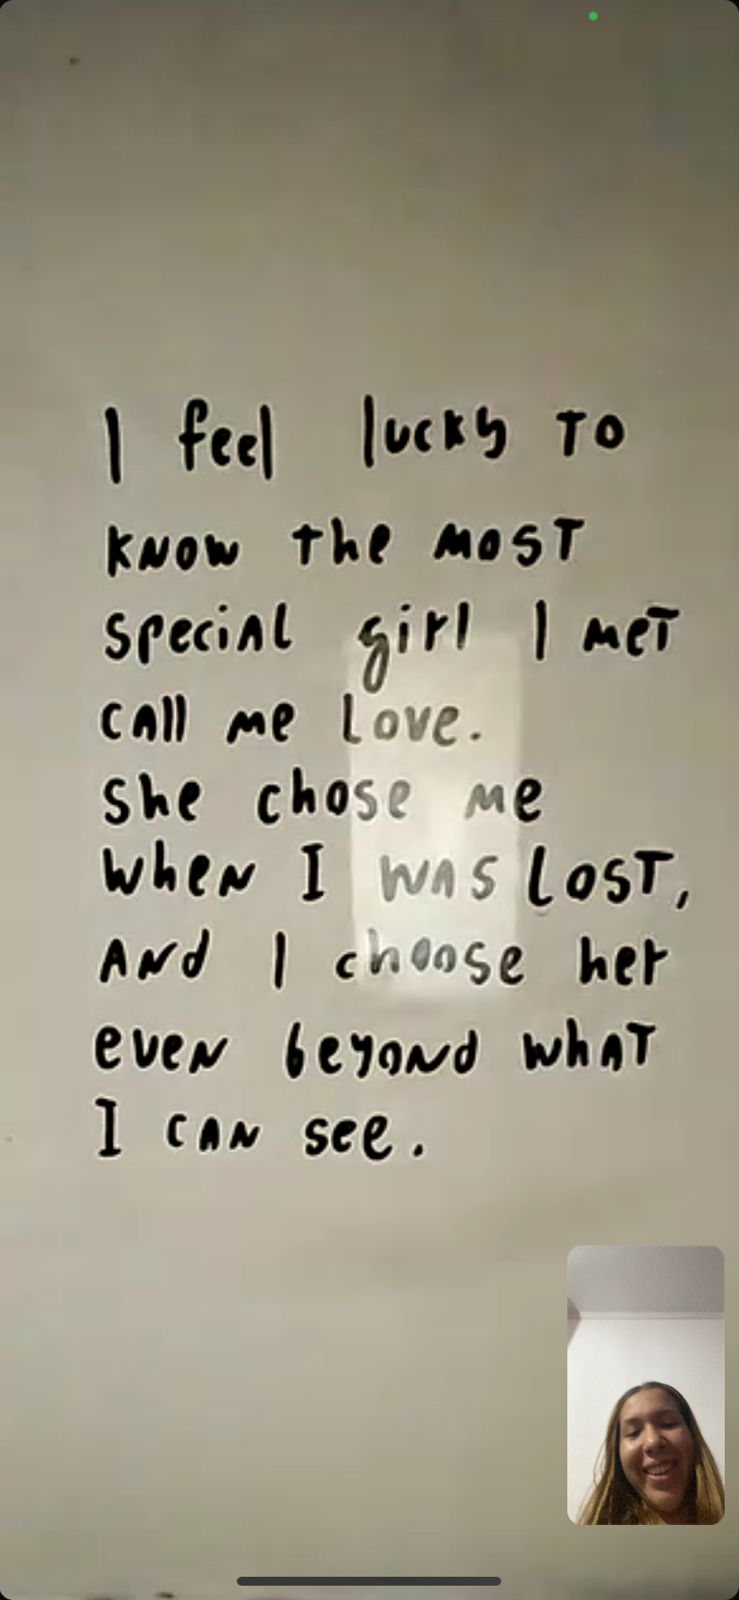 I feel lucky to
know the most
special girl I met
call me love.
She chose me
when I was lost,
and I choose her
even beyond what
I can see.